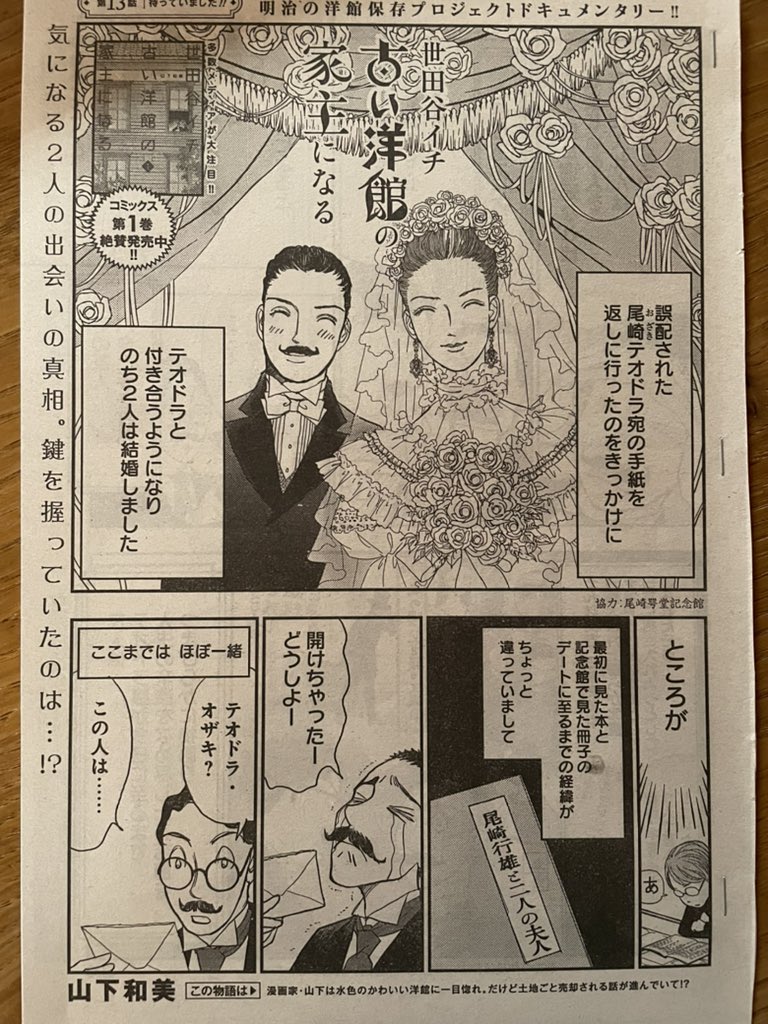 第13話
待っていました!!
明治の洋館保存プロジェクトドキュメンタリー!!
世田谷イチ
古い洋館の
家主になる
多数メディアが大注目!!
世田谷イチ
古い洋館の
家主になる
1
コミックス
第1巻
絶賛発売中
!!
誤配された
尾崎テオドラ宛の手紙を
おざき
返しに行ったのをきっかけに
テオドラと
付き合うようになり
のち2人は結婚しました
気になる2人の出会いの真相。鍵を握っていたのは…!?
協力:尾崎咢堂記念館
ところが
あ
最初に見た本と
記念館で見た冊子の
デートに至るまでの経緯が
ちょっと
違っていまして
尾崎行雄と二人の夫人
開けちゃったー
どうしよー
ここまでは ほぼ一緒
テオドラ・
オザキ?
この人は……
山下和美
この物語は▶
漫画家・山下は水色のかわいい洋館に一目惚れ。だけど土地ごと売却される話が進んでいて!?